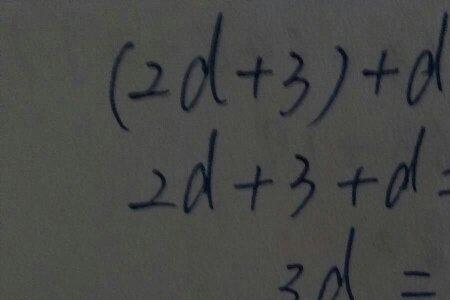 (2d+3)+d
2d+3+d=
3d=